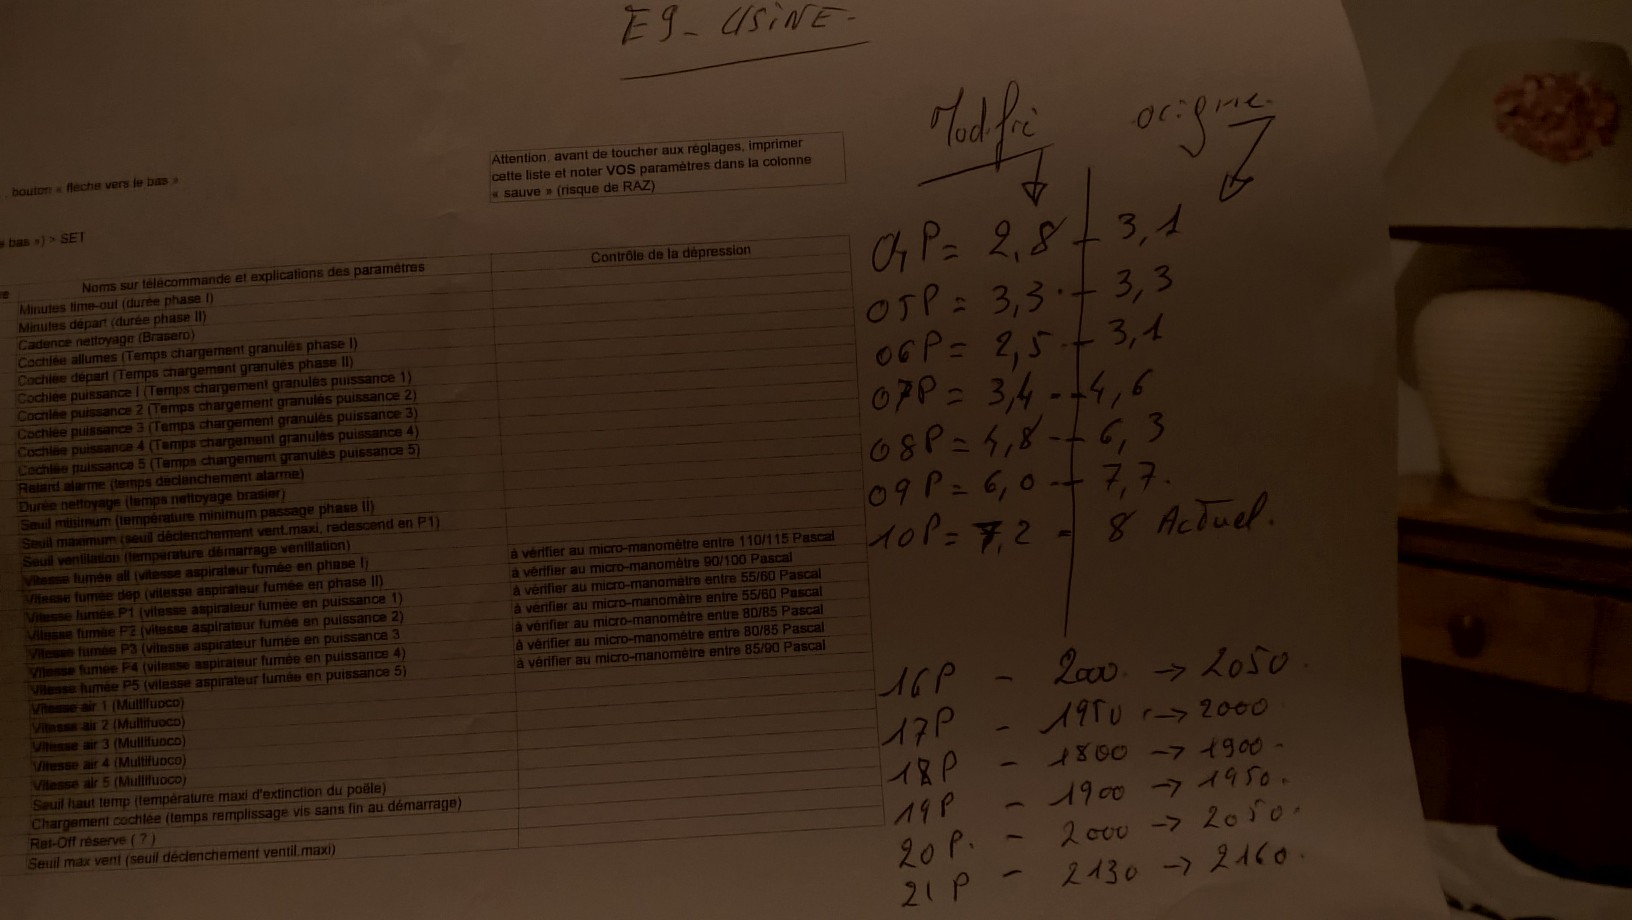 E9 - USINE -
Modifié
origine
Attention, avant de toucher aux réglages, imprimer
cette liste et noter VOS paramètres dans la colonne
« sauve » (risque de RAZ)
, bouton « flèche vers le bas »
bas ») > SET
Noms sur télécommande et explications des paramètres
Contrôle de la dépression
Minutes time-out (durée phase I)
Minutes départ (durée phase II)
Cadence nettoyage (Brasero)
Cochlée allumes (Temps chargement granulés phase I)
Cochlée départ (Temps chargement granulés phase II)
Cochlée puissance I (Temps chargement granulés puissance 1)
Cochlée puissance 2 (Temps chargement granulés puissance 2)
Cochlée puissance 3 (Temps chargement granulés puissance 3)
Cochlée puissance 4 (Temps chargement granulés puissance 4)
Cochlée puissance 5 (Temps chargement granulés puissance 5)
Retard alarme (temps déclenchement alarme)
Durée nettoyage (temps nettoyage brasier)
Seuil minimum (température minimum passage phase II)
Seuil maximum (seuil déclenchement vent.maxi, redescend en P1)
Seuil ventilation (température démarrage ventilation)
Vitesse fumée all (vitesse aspirateur fumée en phase I) à vérifier au micro-manomètre entre 110/115 Pascal
Vitesse fumée dep (vitesse aspirateur fumée en phase II) à vérifier au micro-manomètre 90/100 Pascal
Vitesse fumée P1 (vitesse aspirateur fumée en puissance 1) à vérifier au micro-manomètre entre 55/60 Pascal
Vitesse fumée P2 (vitesse aspirateur fumée en puissance 2) à vérifier au micro-manomètre entre 55/60 Pascal
Vitesse fumée P3 (vitesse aspirateur fumée en puissance 3 à vérifier au micro-manomètre entre 80/85 Pascal
Vitesse fumée P4 (vitesse aspirateur fumée en puissance 4) à vérifier au micro-manomètre entre 80/85 Pascal
Vitesse fumée P5 (vitesse aspirateur fumée en puissance 5) à vérifier au micro-manomètre entre 85/90 Pascal
Vitesse air 1 (Multifuoco)
Vitesse air 2 (Multifuoco)
Vitesse air 3 (Multifuoco)
Vitesse air 4 (Multifuoco)
Vitesse air 5 (Multifuoco)
Seuil haut temp (température maxi d'extinction du poêle)
Chargement cochlée (temps remplissage vis sans fin au démarrage)
Ret-Off réserve ( ? )
Seuil max vent (seuil déclenchement ventil.maxi)
04P = 2,8 - 3,1
05P = 3,3 - 3,3
06P = 2,5 - 3,1
07P = 3,4 - 4,6
08P = 4,8 - 6,3
09P = 6,0 - 7,7.
10P = 7,2 = 8 Actuel.
16P - 2000. → 2050.
17P - 1950 → 2000
18P - 1800 → 1900 -
19P - 1900 → 1950.
20P. - 2000 → 2050.
21P - 2130 → 2160.